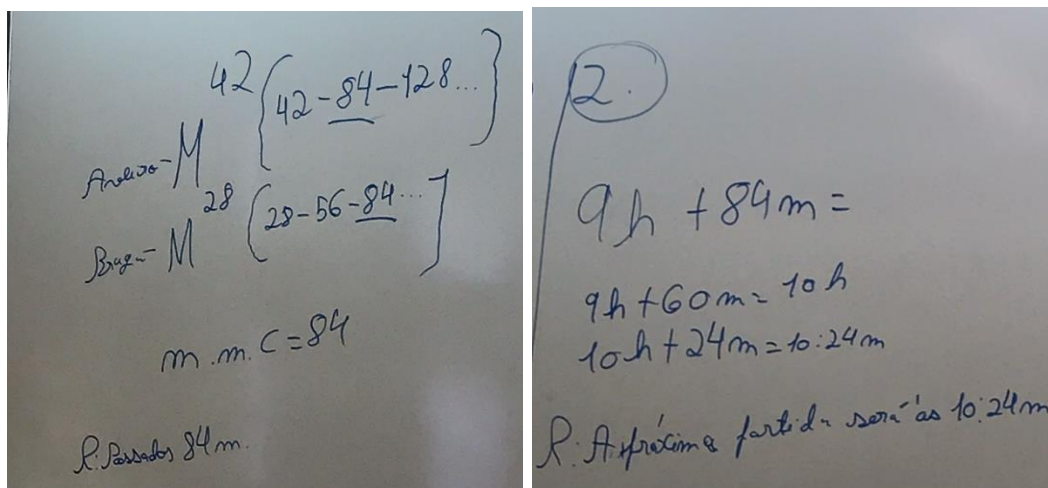 42
Aveiro - M {42 - 84 - 128...}
28
Braga - M {28 - 56 - 84...}
m.m.c = 84
R: Passados 84m.
2.
9h + 84m =
9h + 60m = 10h
10h + 24m = 10:24m
R: A próxima partida será às 10:24m